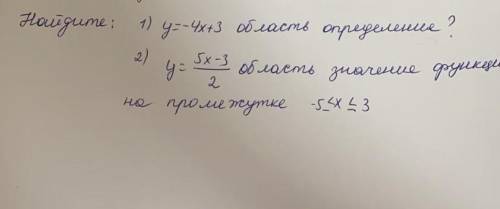 Найдите: 1) y=-4x+3 область определение?
2) y= 5x-3/2 область значение функци
на промежутке -5≤x≤3